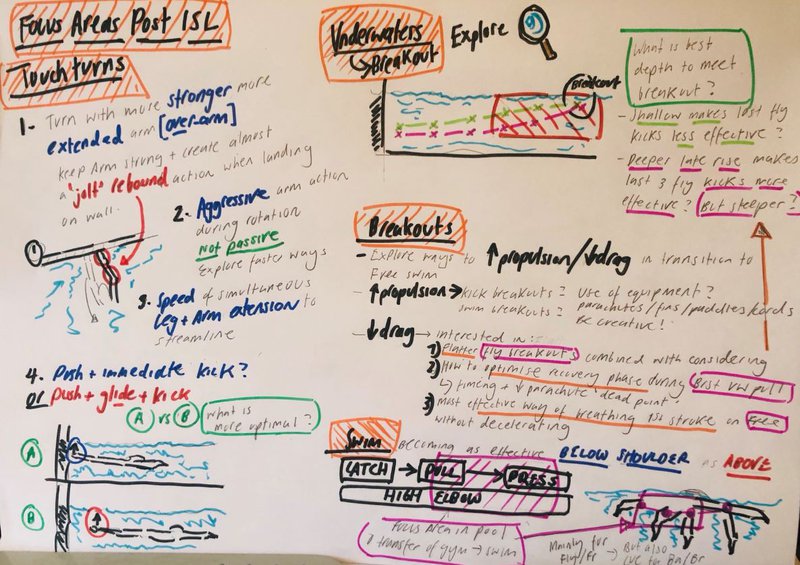 Focus Areas Post ISL
Touch turns
1- Turn with more stronger more
extended arm [over-arm]
keep Arm strong + create almost
a 'jolt' rebound action when landing
on wall.
2. Aggressive arm action
during rotation
Not passive
Explore faster ways
3. Speed of simultaneous
Leg + Arm extension to
streamline
4. Push + immediate kick?
or Push + glide + kick
A vs B
What is
more optimal?
A
B
Underwaters
↳ Breakout
Explore
Breakout
What is best
depth to meet
breakout?
- Shallow makes last fly
kicks less effective?
- Deeper late rise makes
last 3 fly kicks more
effective? But steeper?
Breakouts
- Explore ways to ↑propulsion/↓drag in transition to
Free swim
- ↑propulsion → kick breakouts? Use of equipment?
swim breakouts? parachutes/fins/paddles/cords
Be creative!
- ↓drag → interested in:
1) Flatter fly breakouts combined with considering
2) How to optimise recovery phase during Brst uw pull
↳ timing + ↓ parachute "dead point"
3) Most effective way of breathing 1st stroke on free
without decelerating
Swim
Becoming as effective BELOW SHOULDER as ABOVE
CATCH → PULL → PRESS
HIGH ELBOW
Focus Area in pool
+ transfer of gym → swim
Mainly for
Fly/Fr
→ But also
for Ba/Br